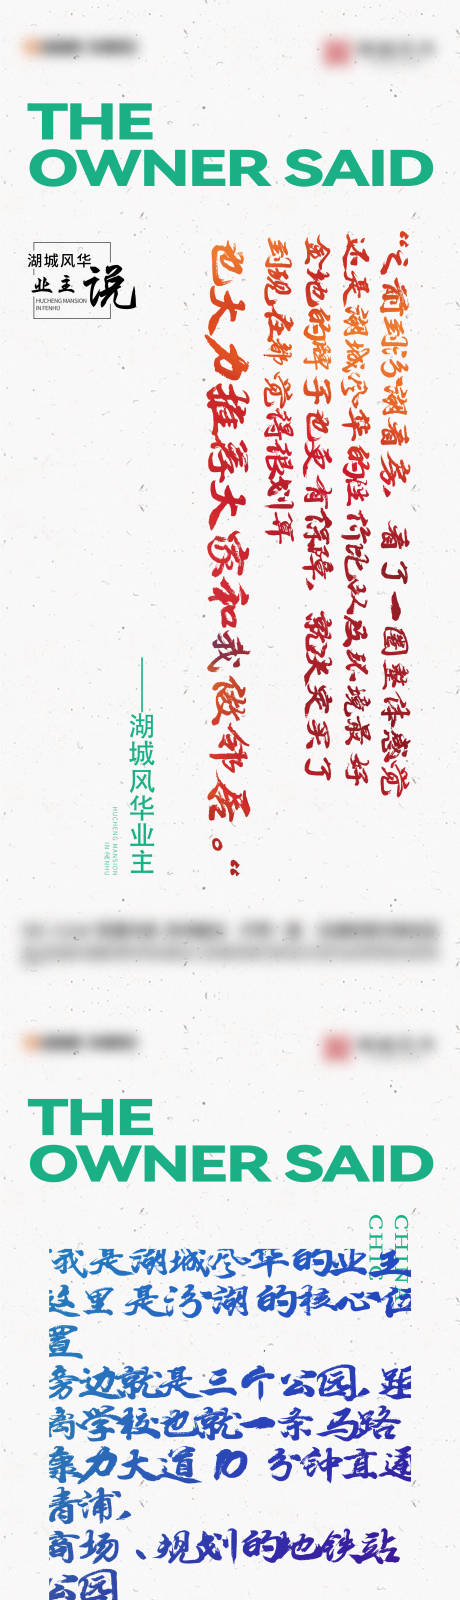 THE
OWNER SAID
湖城风华
业主说
HUCHENG MANSION
IN FENHU
“之前到汾湖看房，看了一圈整体感觉
还是湖城风华的性价比以及环境最好
金地的牌子也更有保障，就决定买了
到现在都觉得很划算
也大力推荐大家和我做邻居。“
——湖城风华业主
HUCHENG MANSION
IN FENHU
THE
OWNER SAID
CHINA
CHIC
我是湖城风华的业主
这里是汾湖的核心位
置
旁边就是三个公园，距
离学校也就一条马路
康力大道10分钟直通
青浦，
商场、规划的地铁站
公园